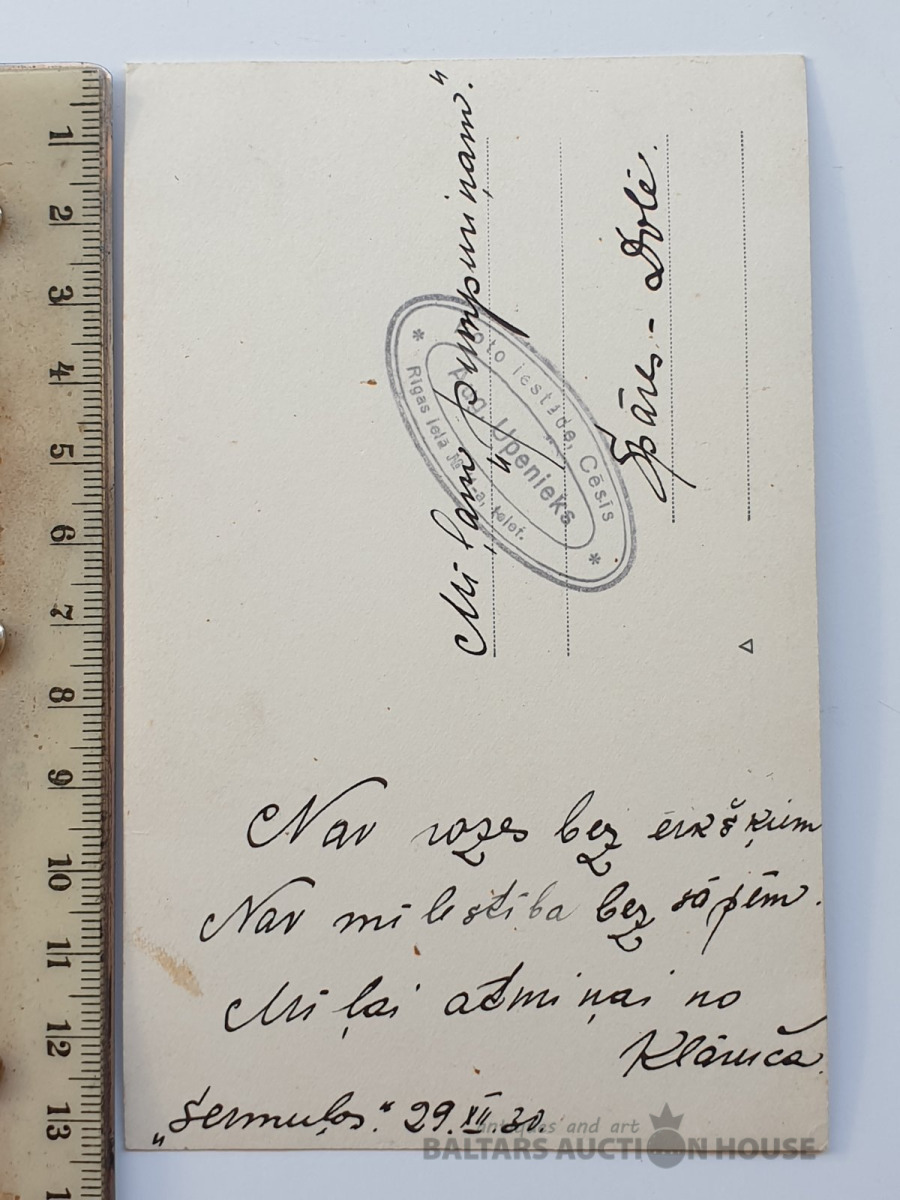 Mīļam „pumpuriņam."
Spāres - Dolē.
Foto iestāde, Cēsis
Aug. Upenieks
Rīgas ielā № telef.
Nav rozes bez ērkšķiem
Nav mīlestība bez sāpēm.
Mīļai atmiņai no
"Sermuļos." 29.XII 30.
antiques and art
BALTARS AUCTION HOUSE
1
2
3
4
5
6
7
8
9
10
11
12
13